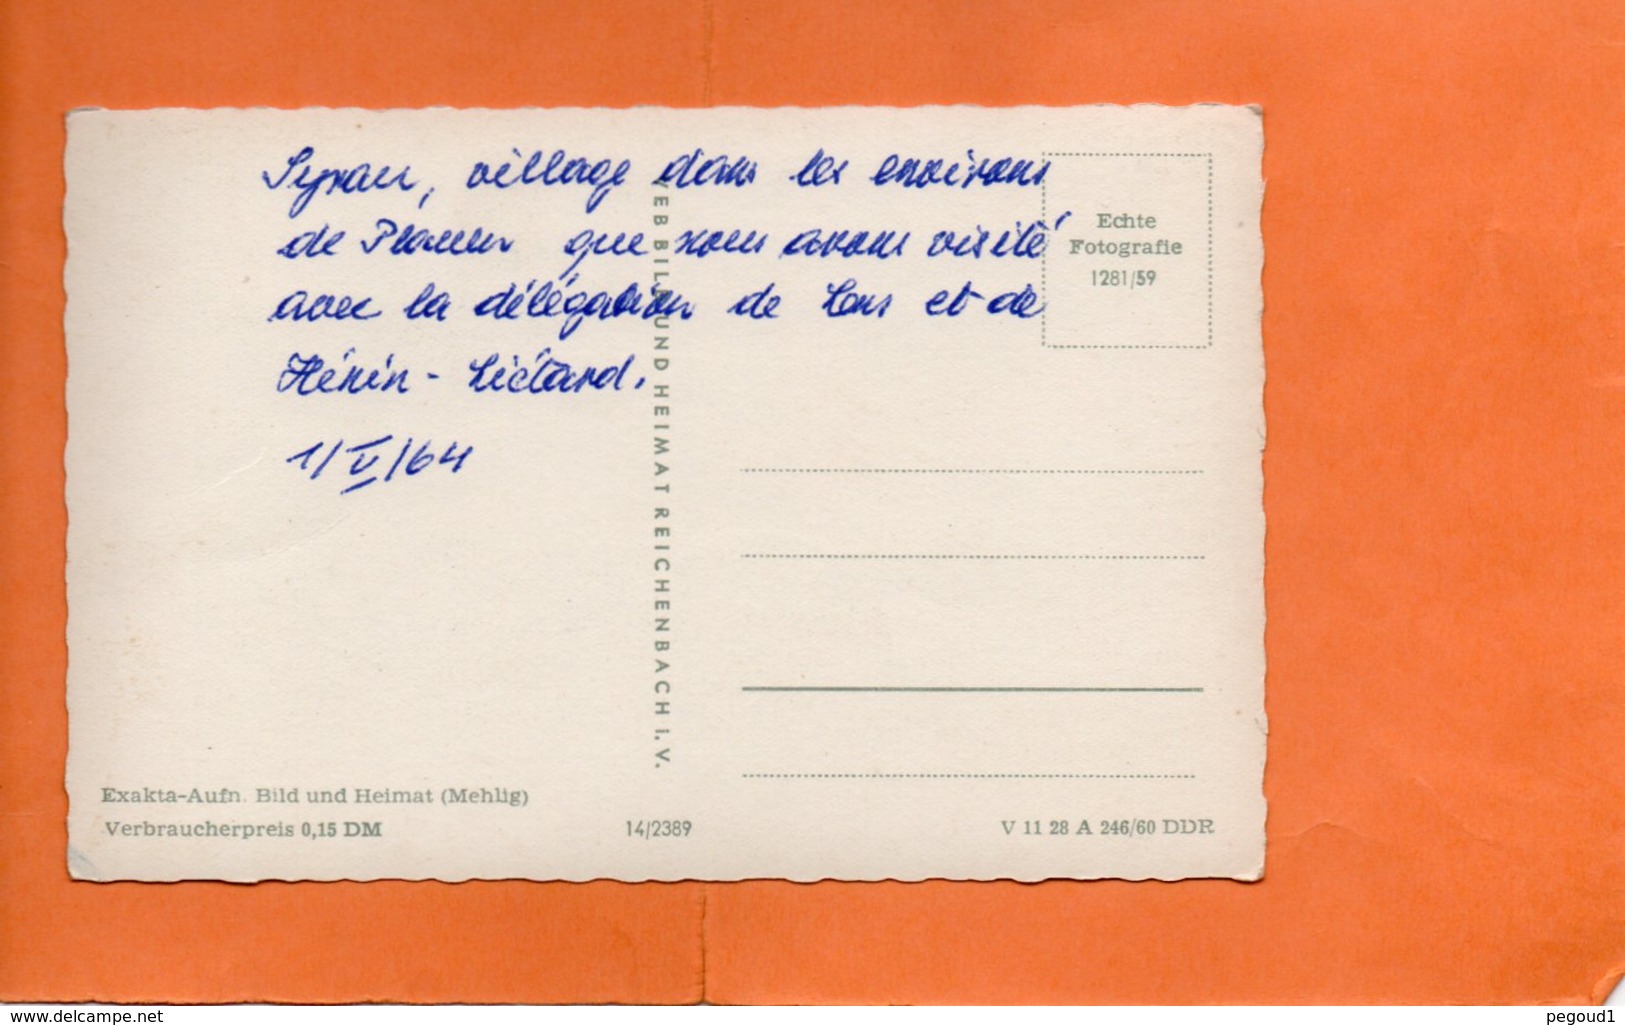 Syrau, village dans les environs
de Plauen que nous avons visité
avec la délégation de Lens et de
Hénin-Liétard.
1/V/64
Echte
Fotografie
1281/59
VEB BILD UND HEIMAT REICHENBACH i. V.
Exakta-Aufn. Bild und Heimat (Mehlig)
Verbraucherpreis 0,15 DM
14/2389
V 11 28 A 246/60 DDR
www.delcampe.net
pegoud1